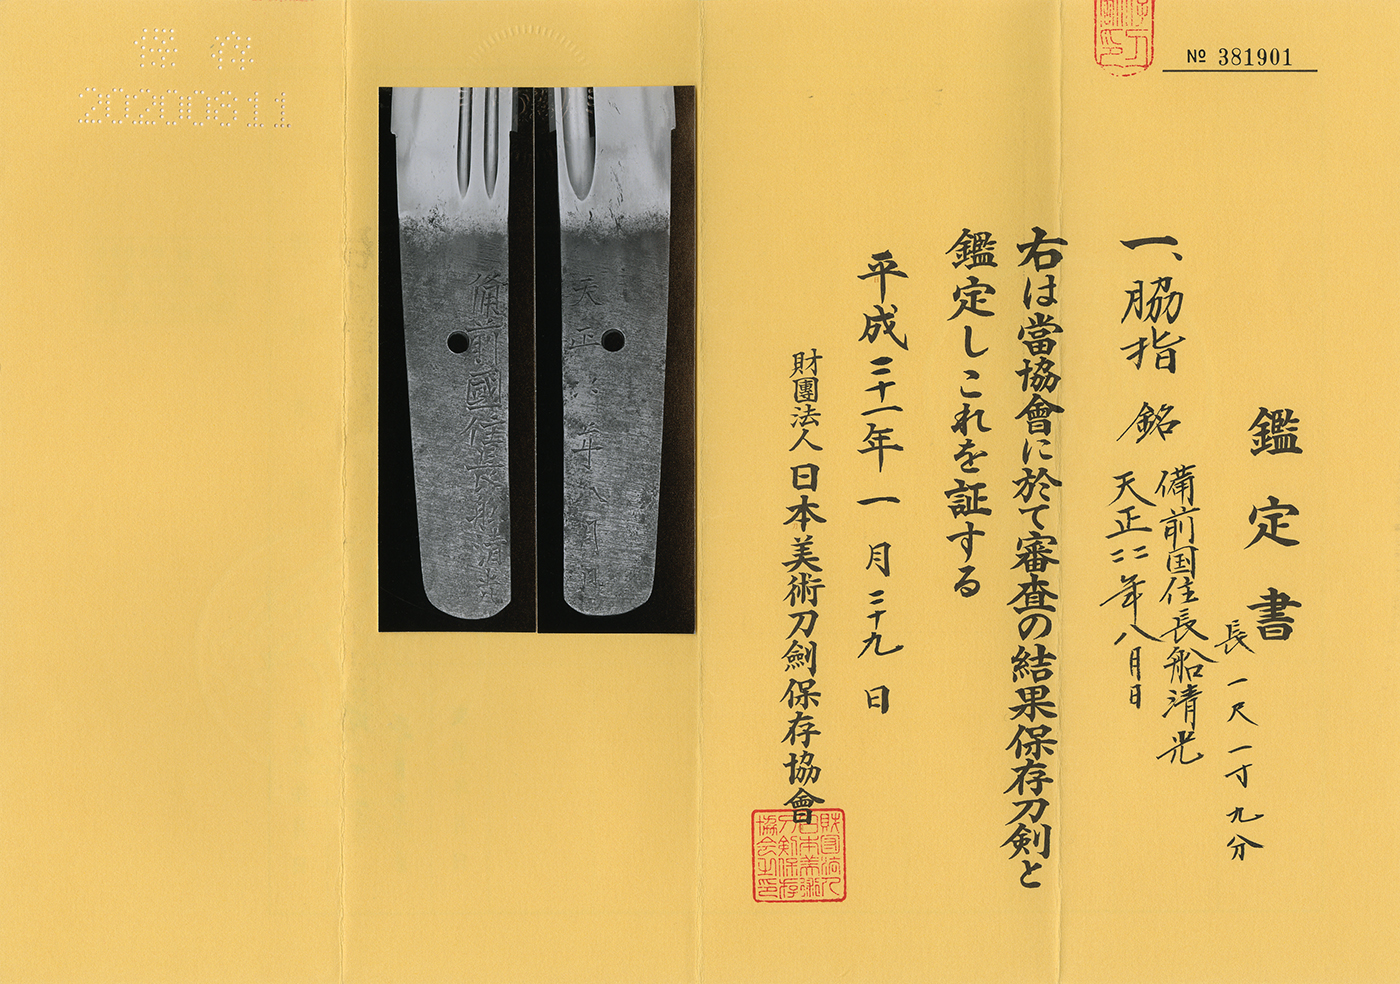 № 381901
鑑定書
長 一尺一寸九分
一、脇指 銘 備前国住長船清光
天正二二年八月日
右は當協會に於て審査の結果保存刀剣と
鑑定しこれを証する
平成二十一年一月二十九日
財團法人日本美術刀劍保存協會
財団法人
日本美術
刀剣保存
協会之印
天正二二年八月日
備前國住長船清光
保存
20200811